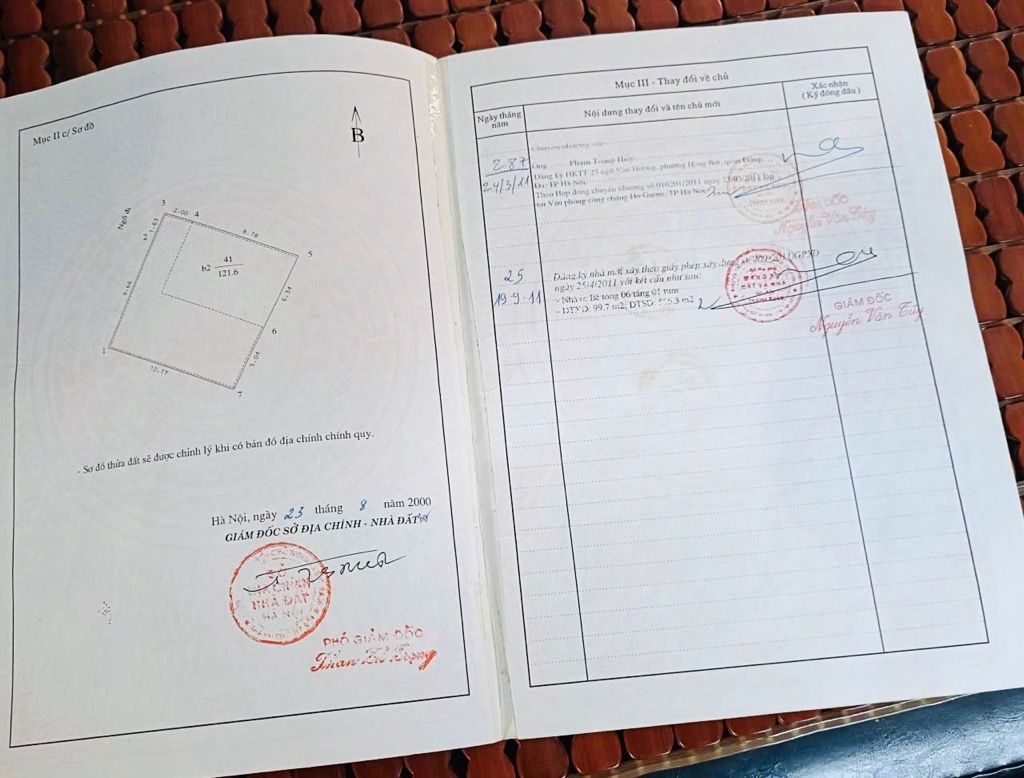 Mục II c/ Sơ đồ
B
Ngõ đi
3
2.00
4
1.63
8.78
5
b2
41
121.6
9.66
6.34
6
5.04
1
10.77
7
- Sơ đồ thửa đất sẽ được chỉnh lý khi có bản đồ địa chính chính quy.
Hà Nội, ngày 23 tháng 8 năm 2000
GIÁM ĐỐC SỞ ĐỊA CHÍNH - NHÀ ĐẤT
NHÀ ĐẤT
HÀ NỘI
PHÓ GIÁM ĐỐC
Mục III - Thay đổi về chủ
Ngày tháng năm
Nội dung thay đổi và tên chủ mới
Xác nhận
( Ký đóng dấu )
Chuyển nhượng cho
287
Ông Phạm Trọng
24/3/11
Đăng ký HKTT 25 ngõ Văn Hương, phường Hàng Bột, quận Đống
Đa: TP Hà Nội.
Theo Hợp đồng chuyển nhượng số 010201/2011 ngày 22/03/2011 lập
tại Văn phòng công chứng Hồ Gươm, TP Hà Nội
GIÁM ĐỐC
Nguyễn Văn Túy
25
19.9.11
Đăng ký nhà mới xây theo giấy phép xây dựng
ngày 25/4/2011 với kết cấu như sau:
- Nhà Bê tông 06 tầng 01 tum
- DTXD: 99.7 m2, DTSD: m2
ĐĂNG KÝ
ĐẤT VÀ NHÀ
GIÁM ĐỐC
Nguyễn Văn Túy